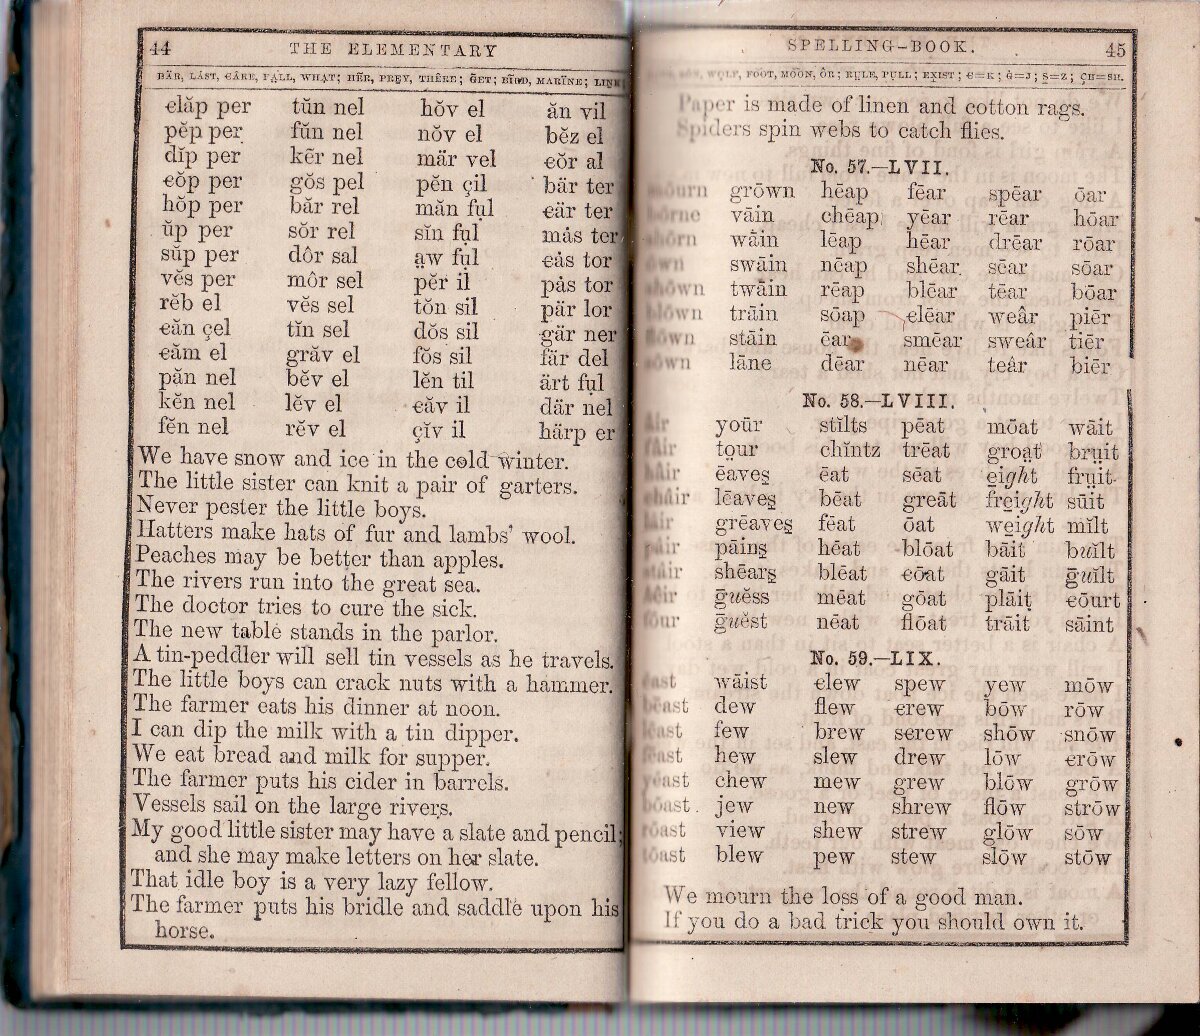 44 THE ELEMENTARY
BÄR, LÅST, CÂRE, FALL, WHAT; HẼR, PREY, THÊRE; ḠET; BĨRD, MARÏNE; LINK
clăp per tŭn nel hŏv el ăn vil
pĕp per fŭn nel nŏv el bĕz el
dĭp per kẽr nel mär vel cŏr al
cŏp per gŏs pel pĕn çil bär ter
hŏp per băr rel măn fụl cär ter
ŭp per sŏr rel sĭn fụl mȧs ter
sŭp per dôr sal a̤w fụl cȧs tor
vĕs per môr sel pĕr il pȧs tor
rĕb el vĕs sel tŏn sil pär lor
căn çel tĭn sel dŏs sil gär ner
căm el grăv el fŏs sil fär del
păn nel bĕv el lĕn til ärt fụl
kĕn nel lĕv el căv il där nel
fĕn nel rĕv el çĭv il härp er
We have snow and ice in the cold winter.
The little sister can knit a pair of garters.
Never pester the little boys.
Hatters make hats of fur and lambs' wool.
Peaches may be better than apples.
The rivers run into the great sea.
The doctor tries to cure the sick.
The new table stands in the parlor.
A tin-peddler will sell tin vessels as he travels.
The little boys can crack nuts with a hammer.
The farmer eats his dinner at noon.
I can dip the milk with a tin dipper.
We eat bread and milk for supper.
The farmer puts his cider in barrels.
Vessels sail on the large rivers.
My good little sister may have a slate and pencil;
and she may make letters on her slate.
That idle boy is a very lazy fellow.
The farmer puts his bridle and saddle upon his
horse.
SPELLING-BOOK. 45
WOLF, FOOT, MOON, ÔR; RULE, PULL; EXIST; C=K; G=J; S=Z; ÇH=SH.
Paper is made of linen and cotton rags.
Spiders spin webs to catch flies.
No. 57.—LVII.
mōurn grōwn hēap fēar spēar ōar
bōrne vāin chēap yēar rēar hōar
shōrn wāin lēap hēar drēar rōar
ōwn swāin nēap shēar sēar sōar
shōwn twāin rēap blēar tēar bōar
blōwn trāin sōap clēar weâr piēr
flōwn stāin ēar smēar sweâr tiēr
sōwn lāne dēar nēar teâr biēr
No. 58.—LVIII.
âir yoūr stĭlts pēat mōat wāit
fâir to̤ur chĭntz trēat groa̤t brṳit
hâir ēaveş ēat sēat e̱ight frṳit
châir lēaveş bēat greāt fre̱ight sūit
lâir grēaveş fēat ōat we̱ight mĭlt
pâir pāinş hēat blōat bāit buĭlt
stâir shēarş blēat cōat gāit ḡuĭlt
hêir ḡuĕss mēat gōat plāit cōurt
fōur ḡuĕst nēat flōat trāit sāint
No. 59.—LIX.
ēast wāist clew spew yew mōw
bēast dew flew crew bōw rōw
lēast few brew screw shōw snōw
fēast hew slew drew lōw crōw
yēast chew mew grew blōw grōw
bōast jew new shrew flōw strōw
rōast view shew strew glōw sōw
tōast blew pew stew slōw stōw
We mourn the loss of a good man.
If you do a bad trick you should own it.